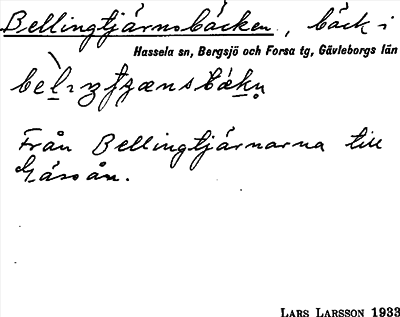 Bellingtjärnsbäcken, bäck i
Hassela sn, Bergsjö och Forsa tg, Gävleborgs län
Från Bellingtjärnarna till
Gåsån.
LARS LARSSON 1933